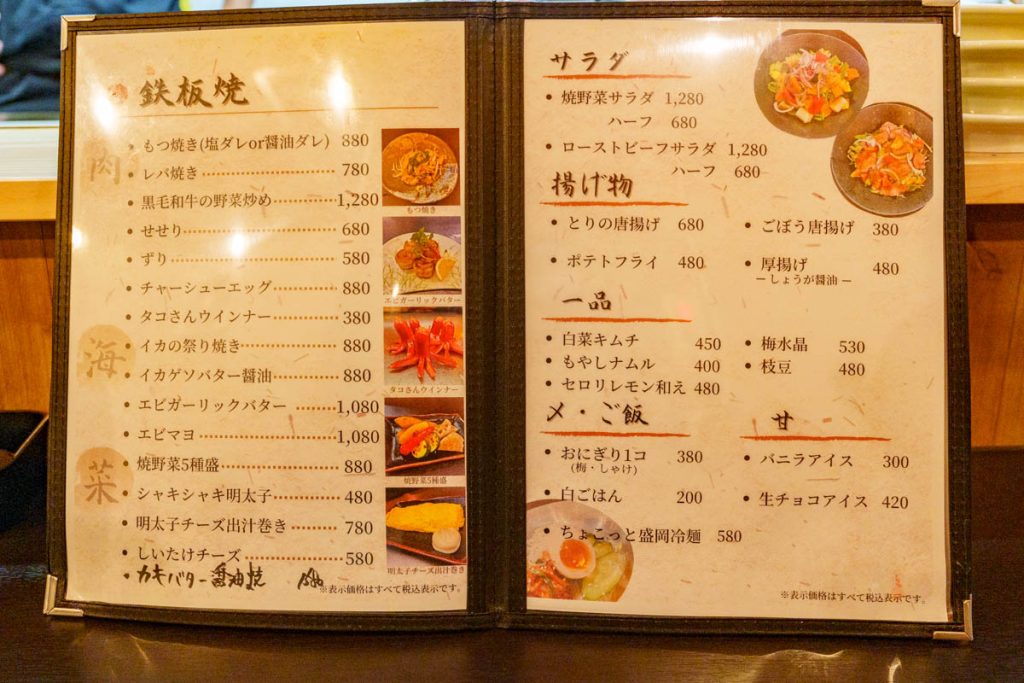 鉄板焼
肉
・もつ焼き(塩ダレor醤油ダレ) 880
・レバ焼き 780
・黒毛和牛の野菜炒め 1,280
・せせり 680
・ずり 580
・チャーシューエッグ 880
・タコさんウインナー 380
海
・イカの祭り焼き 880
・イカゲソバター醤油 880
・エビガーリックバター 1,080
・エビマヨ 1,080
菜
・焼野菜5種盛 880
・シャキシャキ明太子 480
・明太子チーズ出汁巻き 780
・しいたけチーズ 580
・カキバター醤油焼
※表示価格はすべて税込表示です。
もつ焼き
エビガーリックバター
タコさんウインナー
焼野菜5種盛
明太子チーズ出汁巻き
サラダ
・焼野菜サラダ 1,280
ハーフ 680
・ローストビーフサラダ 1,280
ハーフ 680
揚げ物
・とりの唐揚げ 680
・ごぼう唐揚げ 380
・ポテトフライ 480
・厚揚げ 480
ーしょうが醤油ー
一品
・白菜キムチ 450
・もやしナムル 400
・セロリレモン和え 480
・梅水晶 530
・枝豆 480
〆・ご飯
・おにぎり1コ 380
(梅・しゃけ)
・白ごはん 200
・ちょこっと盛岡冷麺 580
甘
・バニラアイス 300
・生チョコアイス 420
※表示価格はすべて税込表示です。